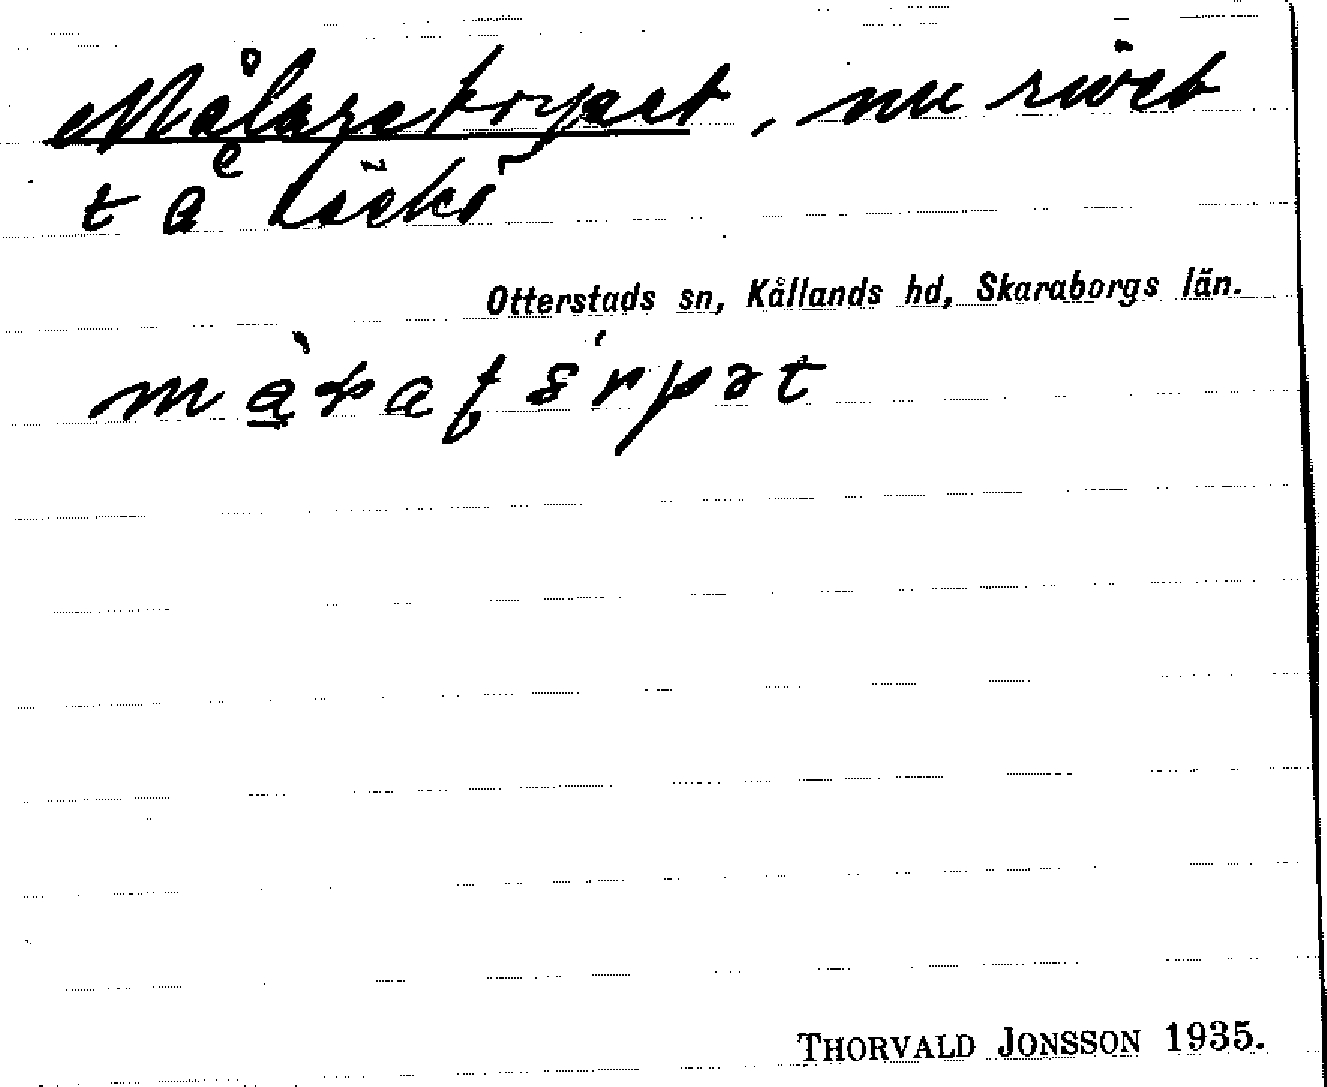 Målaretorpet, nu rivet
t å Läckö
Otterstads sn, Kållands hd, Skaraborgs län.
THORVALD JONSSON 1935.